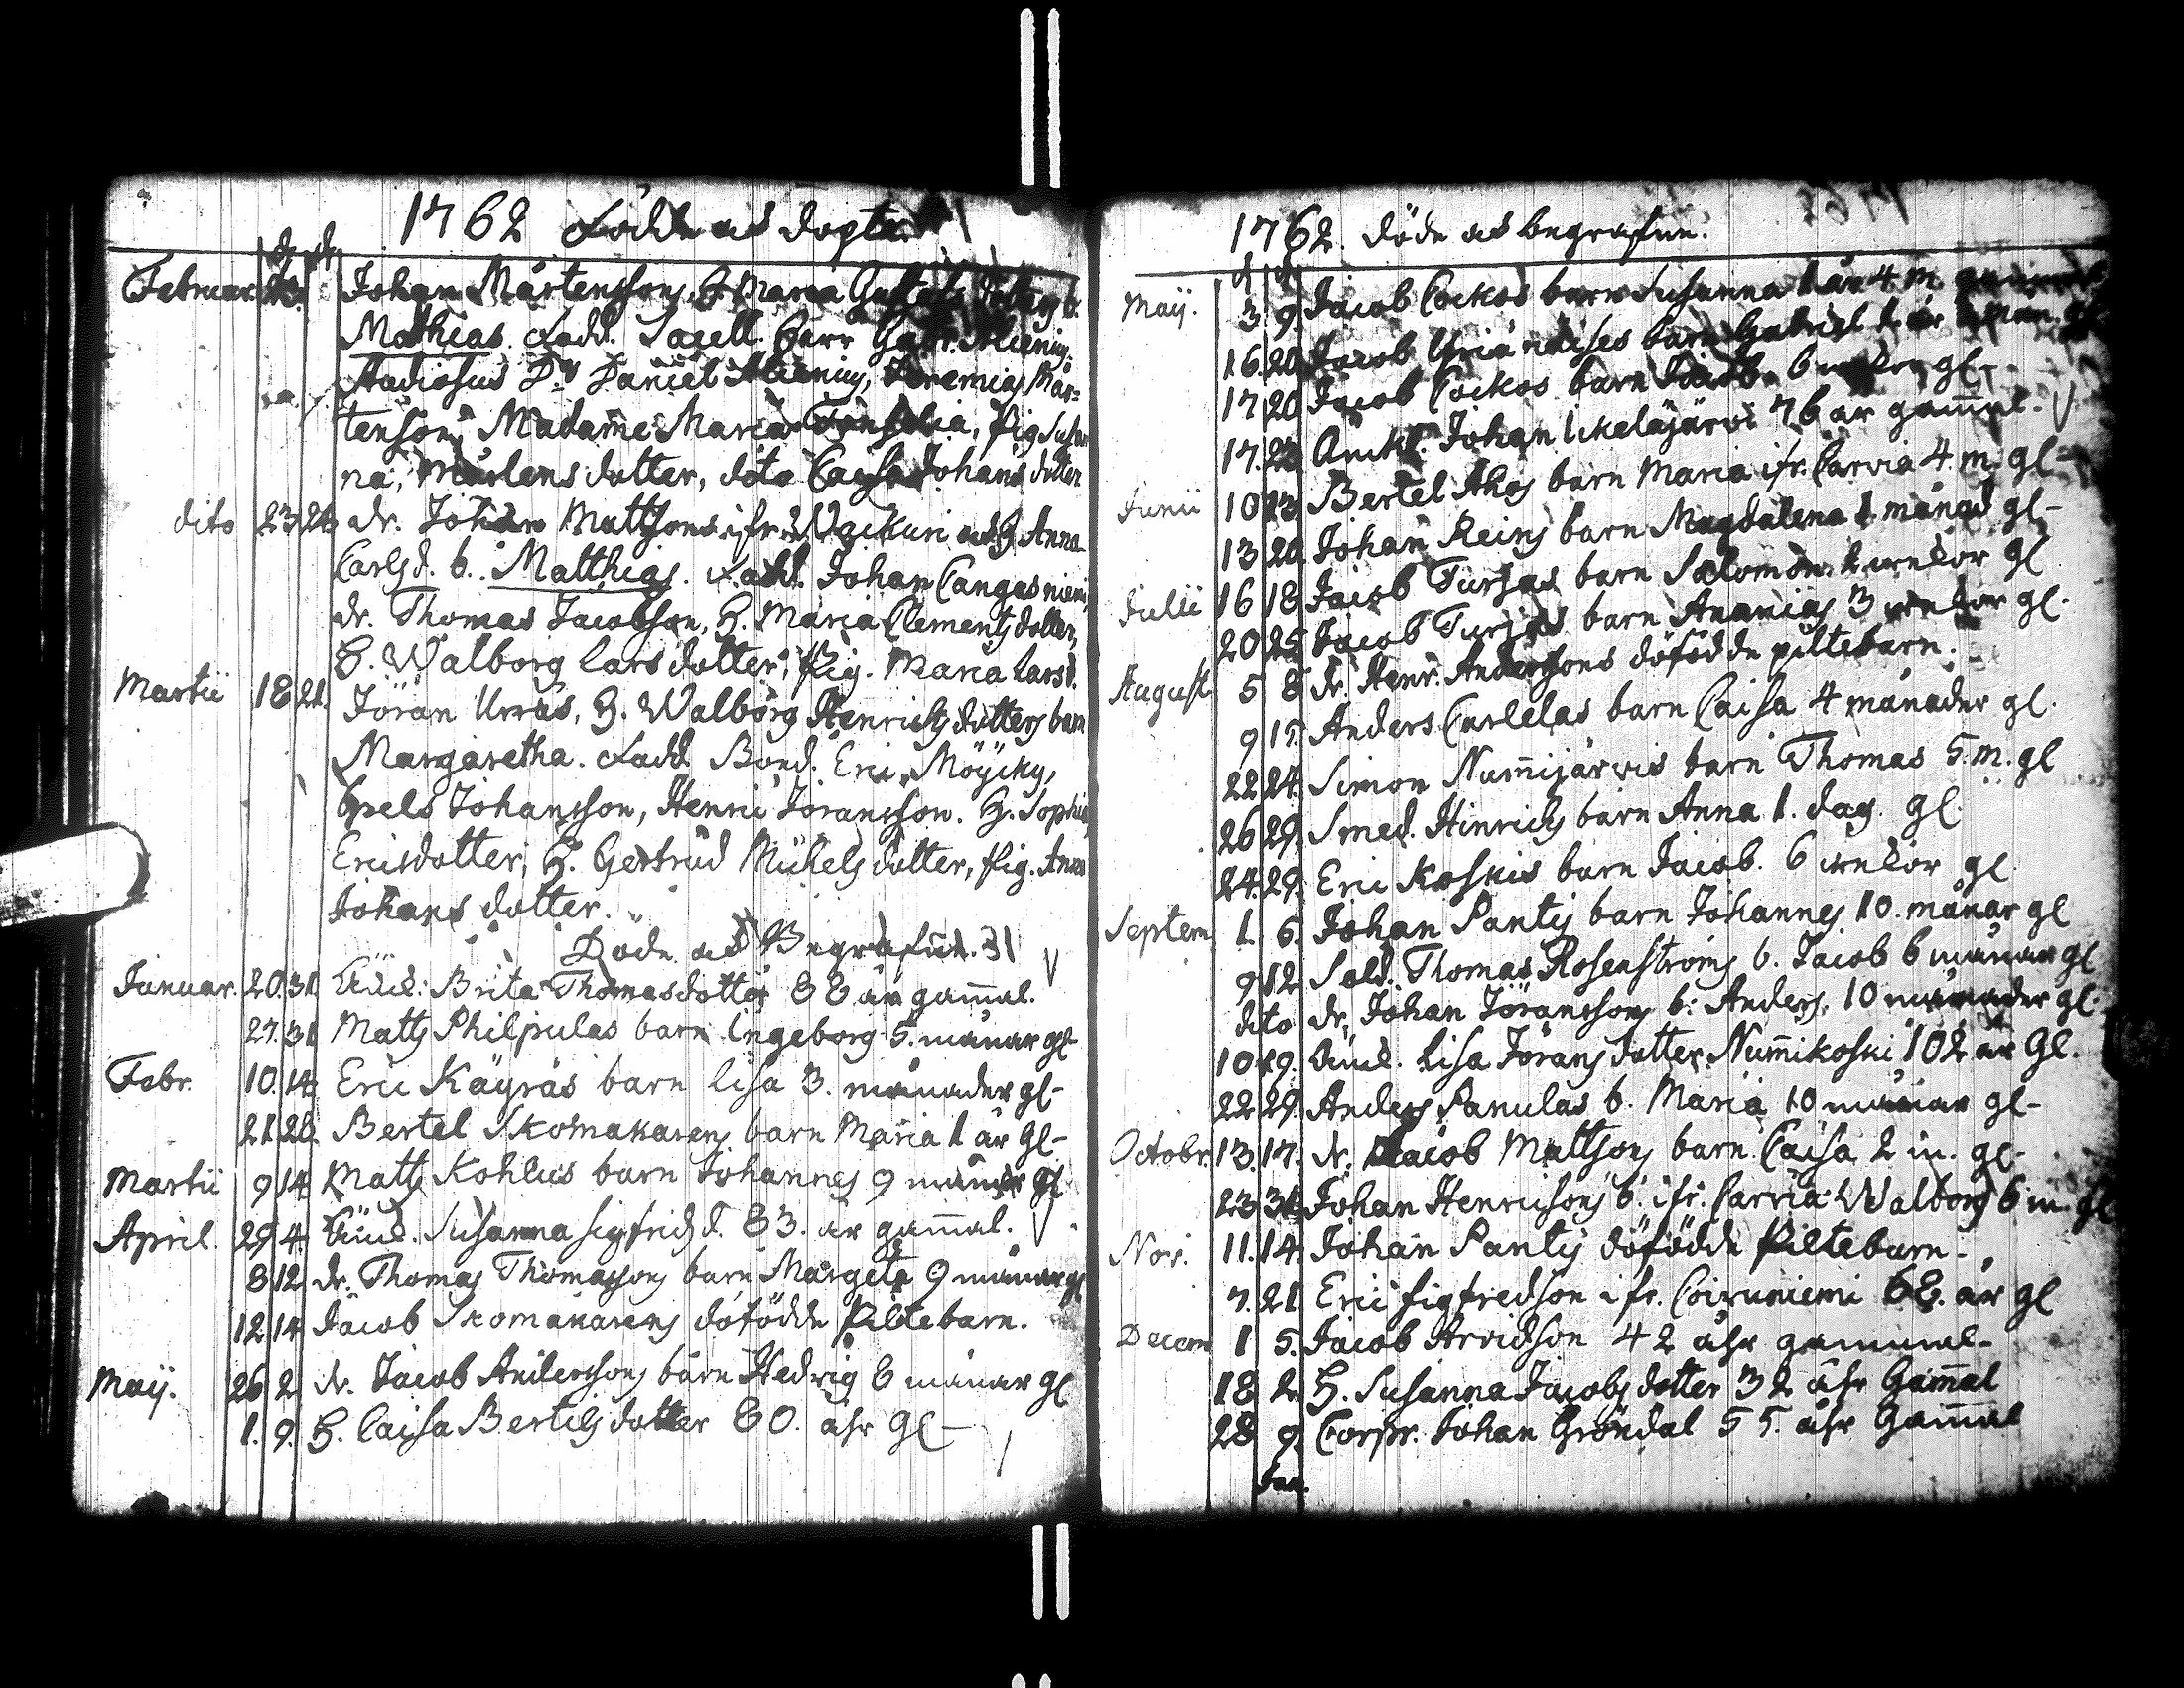 1762 Födde och döpte
d. d.
Februar. Johan Mårtenssons, H. Maria Gustafs dotters b.
Mathias. Fadd. Sacell. Herr Gabr.
Studiosus Dn Daniel Jeremias Mår=
tenson, Madame Maria pig. Susan
na, Mårtens dotter, dito Caisa Johans dotter
dito 23 24 dr. Johan Mattssons ifrån och H. Anna
Carlsd. b. Matthias. Fadd. Johan Cangasniemi,
dr. Thomas Jacobson, H. Maria Clements dotter,
H. Walborg Larsdotter, pig. Maria Larsd.
Martii 18 21. Jöran Urras, H. Walborg Henrichsdotters barn
Margaretha. Fadd. Bond. Eric Möycky,
Johansson, Henric Jöransson. H. Sophia
Ericsdotter, H. Gertrud Michelsdotter, pig. Anna
Johans dotter.
Döde och Begrafne. 31
Januar. 20. 31. Brita Thomasdotter 88 år gam̄al.
27. 31 Matts Philpulas barn Ingeborg 5. månar gl-
Febr. 10. 14. Eric Käyräs barn Lisa 3. månader gl-
21. 28. Bertel Skomakarens barn Maria 1 år gl-
Martii 9 14 Matts Kohlus barn Johannes 9 månar gl
April. 29 4. Susanna Sigfrids d. 83. år gam̄al.
8 12 dr. Thomas Thomassons barn Margeta 9 månar gl
12 14 Jacob Skomakarens döfödde Piltebarn.
Maij. 26 2 dr. Jacob Anderssons barn Hedvig 8 månar gl
1. 9. H. Caisa Bertils dotter 80. åhr gl-
1762. döde och begrafne.
d. d.
Maij. 3. 9. Jacob Cockos barn Susanna 1 år 4 m.
16. 20. Jacob barn Gabriel 1. år
17 20 Jacob Cockos barn Jacob 6 wekor gl-
17. 23 Änckl. Johan Ikeläjärvi 76 år gam̄al.
Junii 10 13. Bertel barn Maria ifr. Carvia 4. m. gl-
13 20. Johan Reins barn Magdalena 1 månad gl-
Julii 16 18 Jacob Turjas barn Salomon 2 wekor gl
20 25 Jacob Turjas barn Ananias 3 wekor gl.
August. 5 8 dr. Henr. Anderssons döfödde piltebarn.
9 15. Anders Carlelas barn Caisa 4 månader gl.
22 24. Simon Num̄ijärvis barn Thomas 5. m. gl
26 29. Smed. Hinrichs barn Anna 1. dag. gl.
24. 29. Eric Koskis barn Jacob. 6 wekor gl
Septem. 1. 6. Johan Pantis barn Johannes 10. månar gl
9 12 Sold. Thomas Rosenströms b. Jacob 6 månar gl
dito dr. Johan Jöranssons b. Anders. 10 månader gl.
10 19. Lisa Jörans dotter Num̄ikoski 102 år Gl.
22 29. Anders Panulas b. Maria 10 månar gl-
Octobr. 13. 17. dr. Jacob Mattsons barn Caisa 2 m. gl-
23 31 Johan Henricsons b. ifr. Carvia Walborg 6 m. gl
Nov. 11. 14. Johan Pantis döfödde Piltebarn-
7. 21. Eric Sigfredson ifr. Coivuniemi 68. år gl
Decem 1 5. Jacob Arvidson 42 åhr gammal-
18 2 H. Susanna Jacobs dotter 32 åhr Gam̄al
28 9. Corpr. Johan Gröndal 55. åhr Gam̄al
Jan.